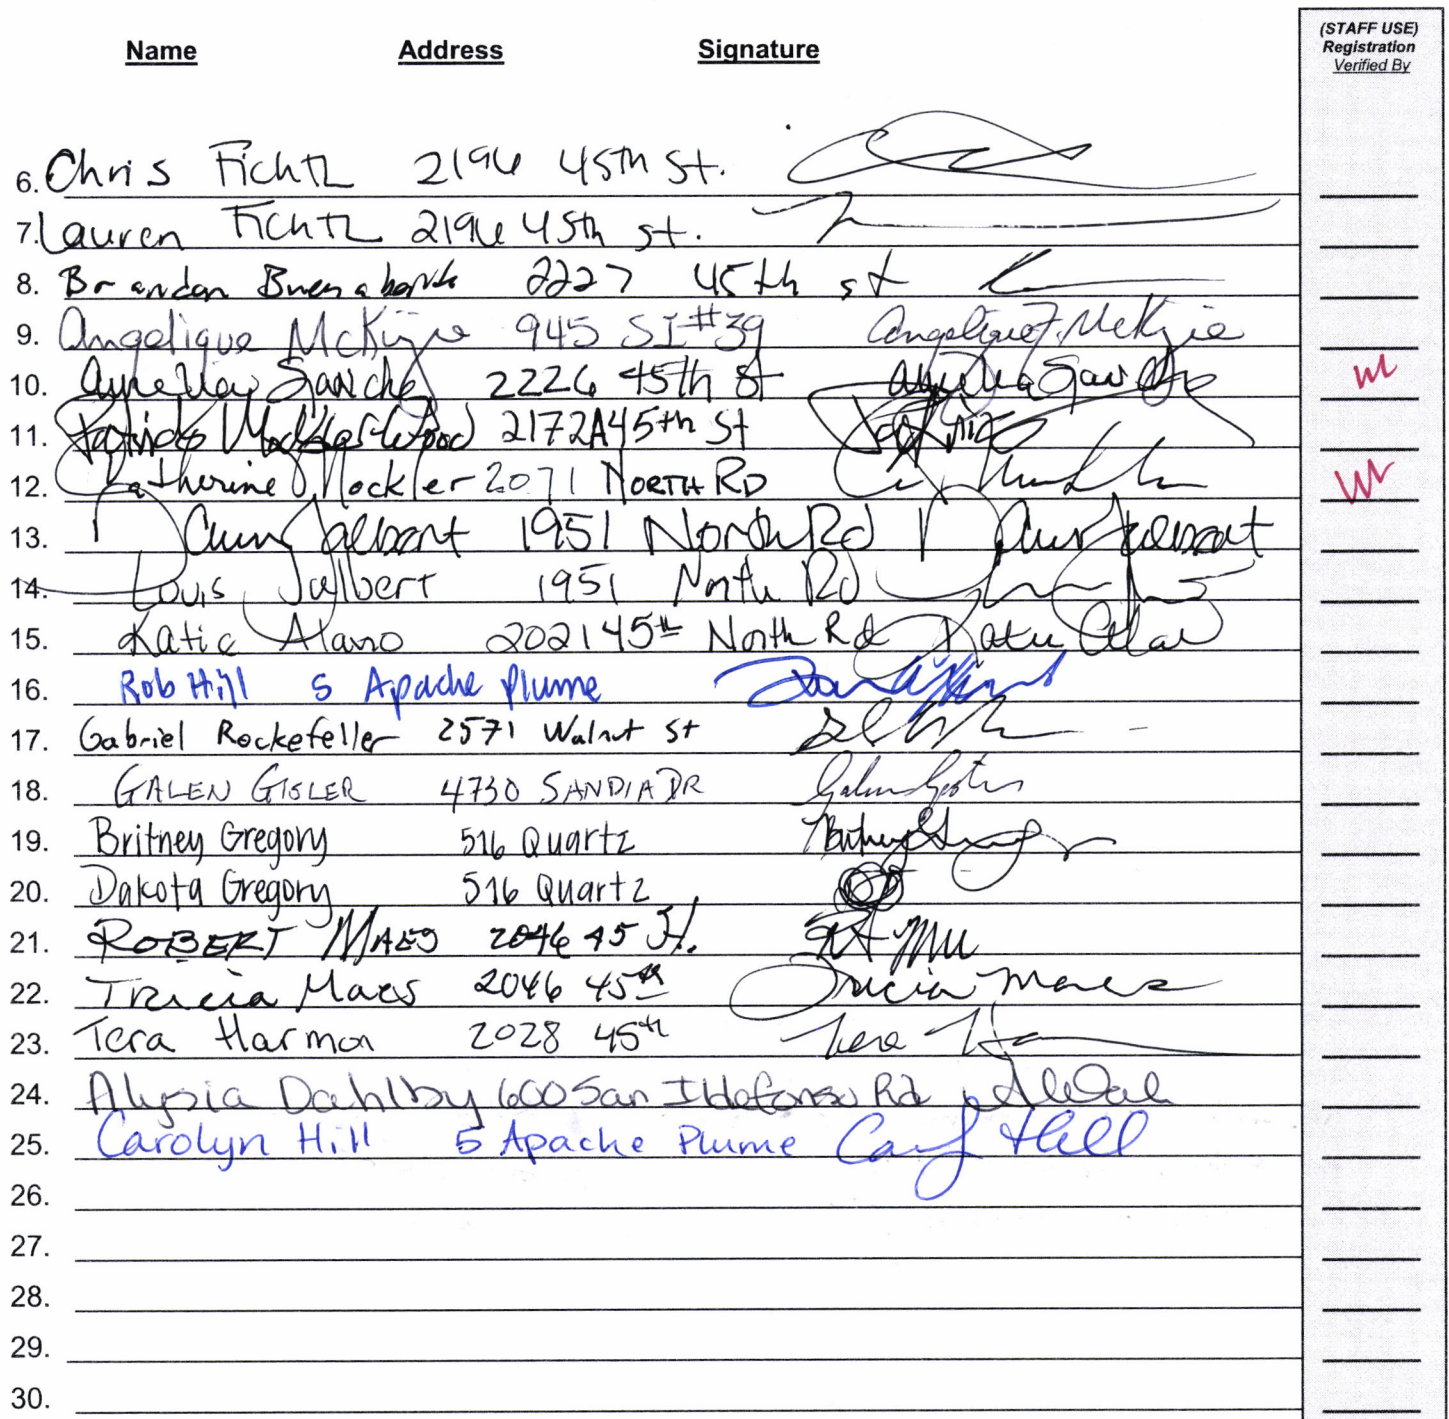 Name Address Signature (STAFF USE)
Registration
Verified By
6. Chris Fichtl 2196 45th St.
7. Lauren Fichtl 2196 45th st.
8. Brandon 2227 45th st
9. Angelique McKijne 945 SI #39 Angelique
10. Sanchez 2226 45th St
11. 2172A 45th St
12. Katherine Mockler 2071 North Rd
13. Jalbert 1951 North Rd
14. Louis Jalbert 1951 North Rd
15. Katie Alano 2021 45th North Rd
16. Rob Hill 5 Apache Plume
17. Gabriel Rockefeller 2571 Walnut St
18. GALEN GISLER 4730 SANDIA DR
19. Britney Gregory 516 Quartz
20. Dakota Gregory 516 Quartz
21. ROBERT MAES 2046 45 St.
22. Tricia Maes 2046 45th Tricia Maes
23. Tera Harmon 2028 45th Tera
24. Alysia Dahlby 600 San Ildefonso Rd
25. Carolyn Hill 5 Apache Plume Hill
26.
27.
28.
29.
30.